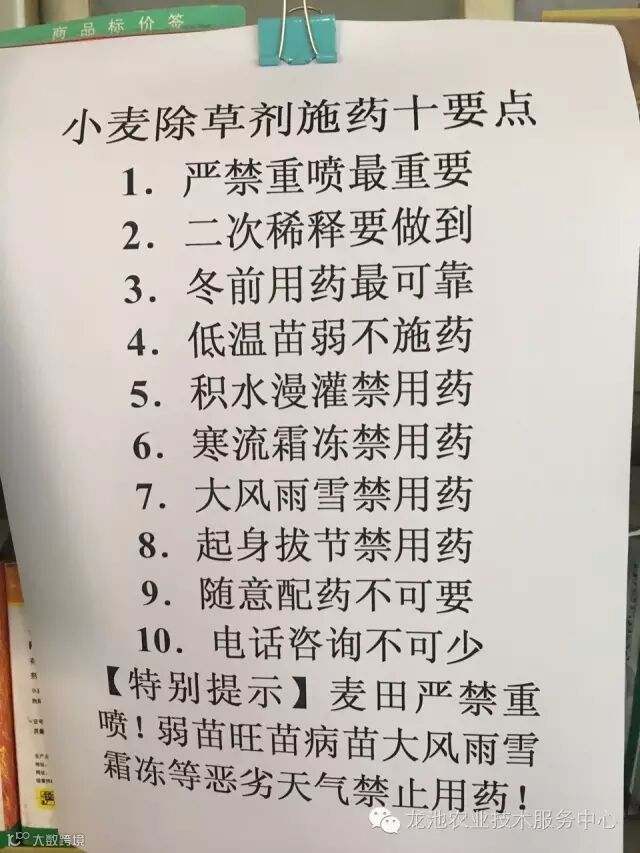 商品标价签
小麦除草剂施药十要点
1. 严禁重喷最重要
2. 二次稀释要做到
3. 冬前用药最可靠
4. 低温苗弱不施药
5. 积水漫灌禁用药
6. 寒流霜冻禁用药
7. 大风雨雪禁用药
8. 起身拔节禁用药
9. 随意配药不可要
10. 电话咨询不可少
【特别提示】麦田严禁重
喷！弱苗旺苗病苗大风雨雪
霜冻等恶劣天气禁止用药！
龙池农业技术服务中心
大数跨境